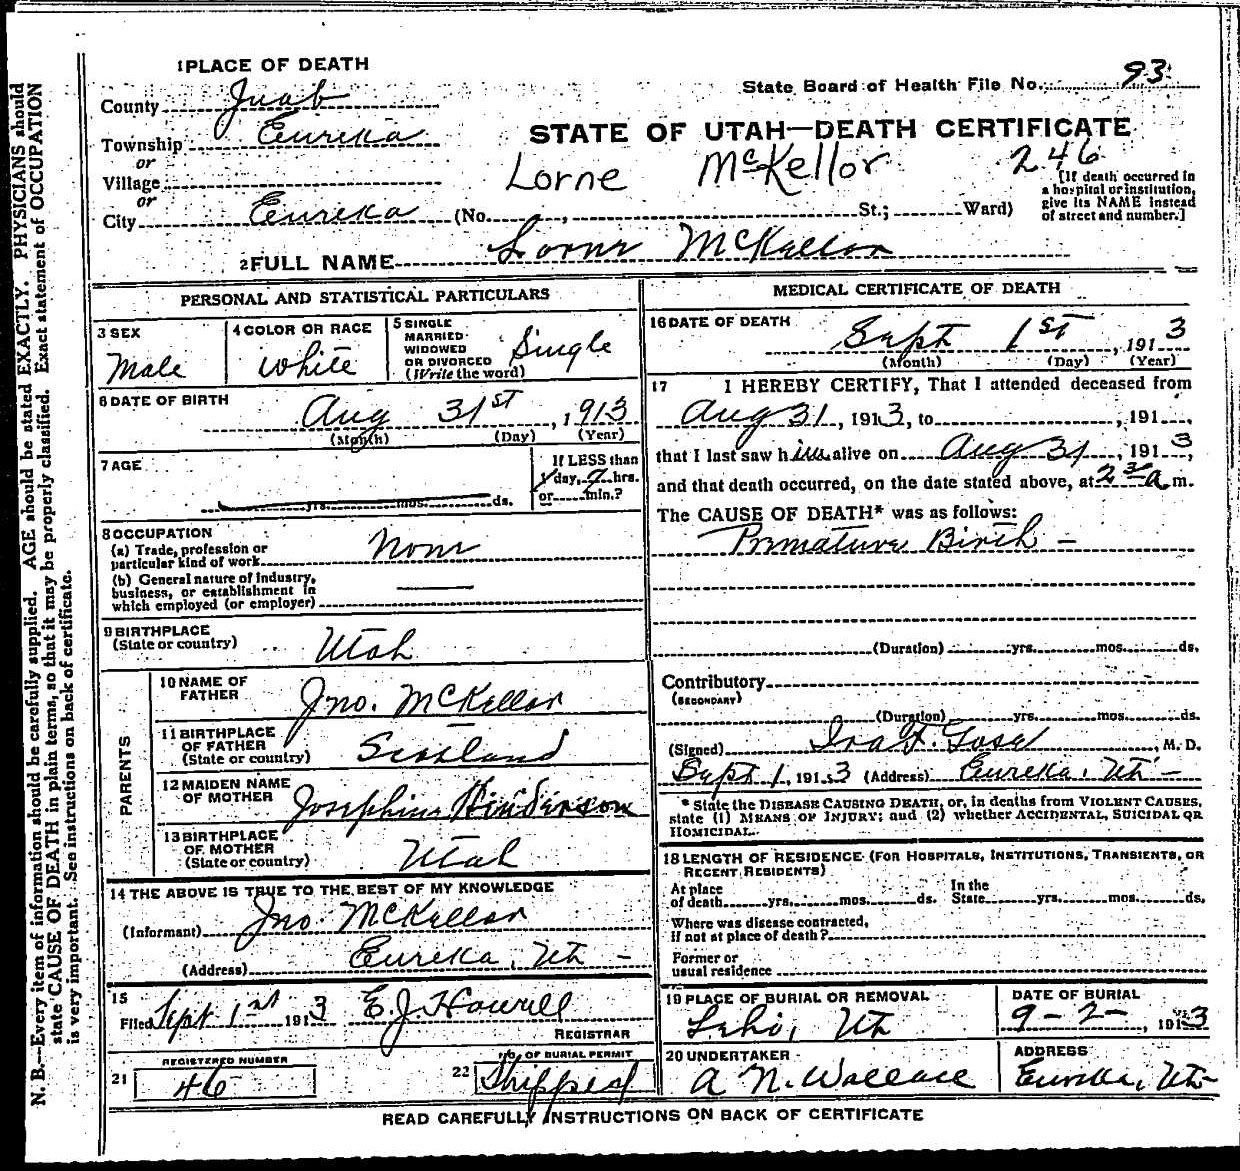 1 PLACE OF DEATH
State Board of Health File No. 93
County Juab
Township Eureka
or
Village
or
City Eureka (No. , St.; Ward)
STATE OF UTAH—DEATH CERTIFICATE
Lorne McKellor 246
[If death occurred in
a hospital or institution,
give its NAME instead
of street and number.]
2 FULL NAME Lorne McKellor
PERSONAL AND STATISTICAL PARTICULARS
3 SEX
Male
4 COLOR OR RACE
White
5 SINGLE
MARRIED
WIDOWED
OR DIVORCED
(Write the word)
Single
6 DATE OF BIRTH
Aug 31st, 1913
(Month) (Day) (Year)
7 AGE
yrs. mos. ds.
If LESS than
1 day, 7 hrs.
or min.?
8 OCCUPATION
(a) Trade, profession or
particular kind of work None
(b) General nature of Industry,
business, or establishment in
which employed (or employer)
9 BIRTHPLACE
(State or country) Utah
PARENTS
10 NAME OF
FATHER Jno. McKellor
11 BIRTHPLACE
OF FATHER
(State or country) Scotland
12 MAIDEN NAME
OF MOTHER Josephine Hinderson
13 BIRTHPLACE
OF MOTHER
(State or country) Utah
14 THE ABOVE IS TRUE TO THE BEST OF MY KNOWLEDGE
(Informant) Jno. McKellor
(Address) Eureka, Ut -
15
Filed Sept 1st 1913 E.J. Howell
REGISTRAR
21
REGISTERED NUMBER
46
22
No. OF BURIAL PERMIT
Shipped
MEDICAL CERTIFICATE OF DEATH
16 DATE OF DEATH
Sept 1st, 1913
(Month) (Day) (Year)
17 I HEREBY CERTIFY, That I attended deceased from
Aug 31, 1913, to , 191 ,
that I last saw him alive on Aug 31, 1913,
and that death occurred, on the date stated above, at 2 30 a m.
The CAUSE OF DEATH* was as follows:
Premature Birth -
(Duration) yrs. mos. ds.
Contributory
(SECONDARY)
(Duration) yrs. mos. ds.
(Signed) Ira F. , M. D.
Sept 1, 1913 (Address) Eureka, Ut -
* State the DISEASE CAUSING DEATH, or, in deaths from VIOLENT CAUSES,
state (1) MEANS OF INJURY; and (2) whether ACCIDENTAL, SUICIDAL OR
HOMICIDAL.
18 LENGTH OF RESIDENCE (FOR HOSPITALS, INSTITUTIONS, TRANSIENTS, OR
RECENT RESIDENTS)
At place
of death yrs. mos. ds.
In the
State yrs. mos. ds.
Where was disease contracted,
If not at place of death?
Former or
usual residence
19 PLACE OF BURIAL OR REMOVAL
Lehi, Ut
DATE OF BURIAL
9-2-, 1913
20 UNDERTAKER
A N. Wallace
ADDRESS
Eureka, Ut-
READ CAREFULLY INSTRUCTIONS ON BACK OF CERTIFICATE
N. B.—Every item of information should be carefully supplied. AGE should be stated EXACTLY. PHYSICIANS should
state CAUSE OF DEATH in plain terms, so that it may be properly classified. Exact statement of OCCUPATION
is very important. See instructions on back of certificate.